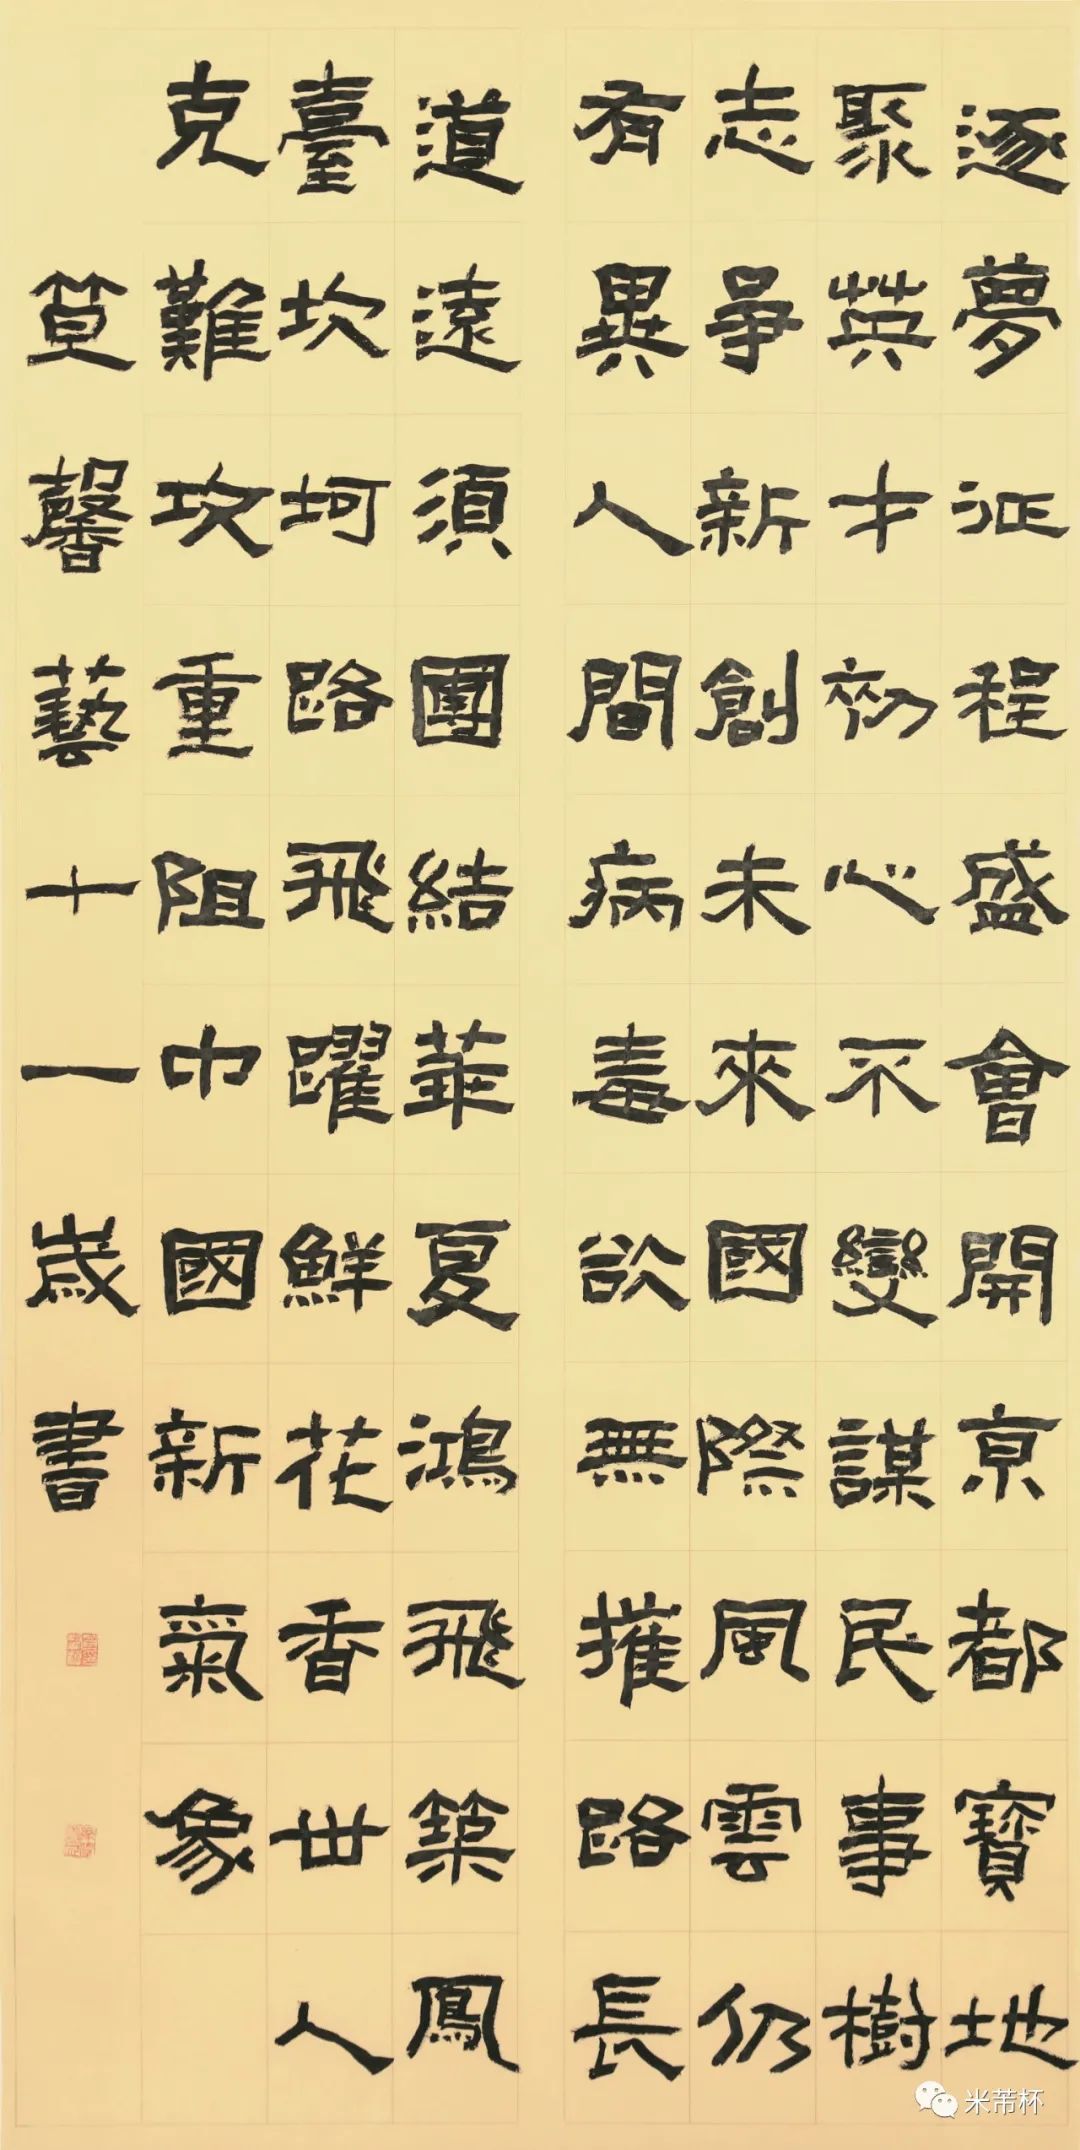 逐夢征程盛會開京都寶地
聚英才初心不變謀民事樹
志爭新創未來國際風雲仍
有異人間病毒欲無摧路長
道遠須團結華夏鴻飛築鳳
臺坎坷路飛躍鮮花香世人
克難攻重阻中國新氣象
笪馨藝十一歲書
米芾杯